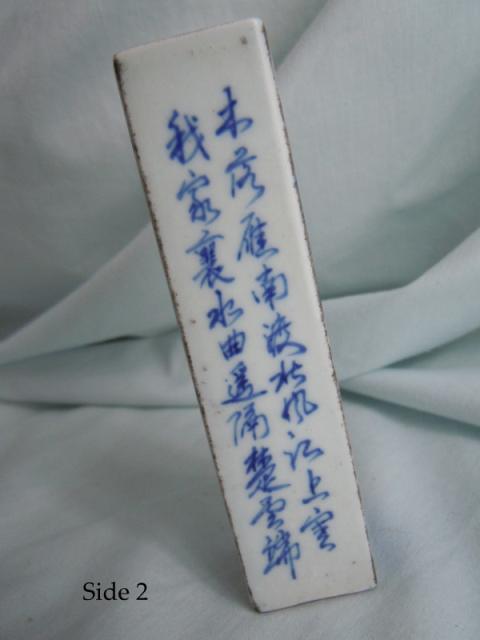 木落雁南渡北风江上寒
我家襄水曲遥隔楚云端
Side 2